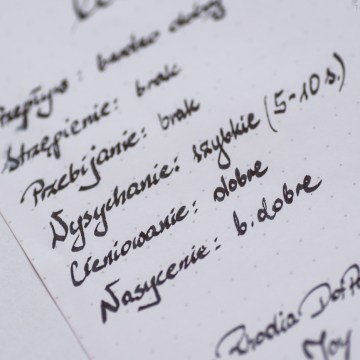 Przepływ: bardzo dobry
Strzępienie: brak
Przebijanie: brak
Wysychanie: szybkie (5-10 s.)
Cieniowanie: dobre
Nasycenie: b. dobre
Brodia
Joy